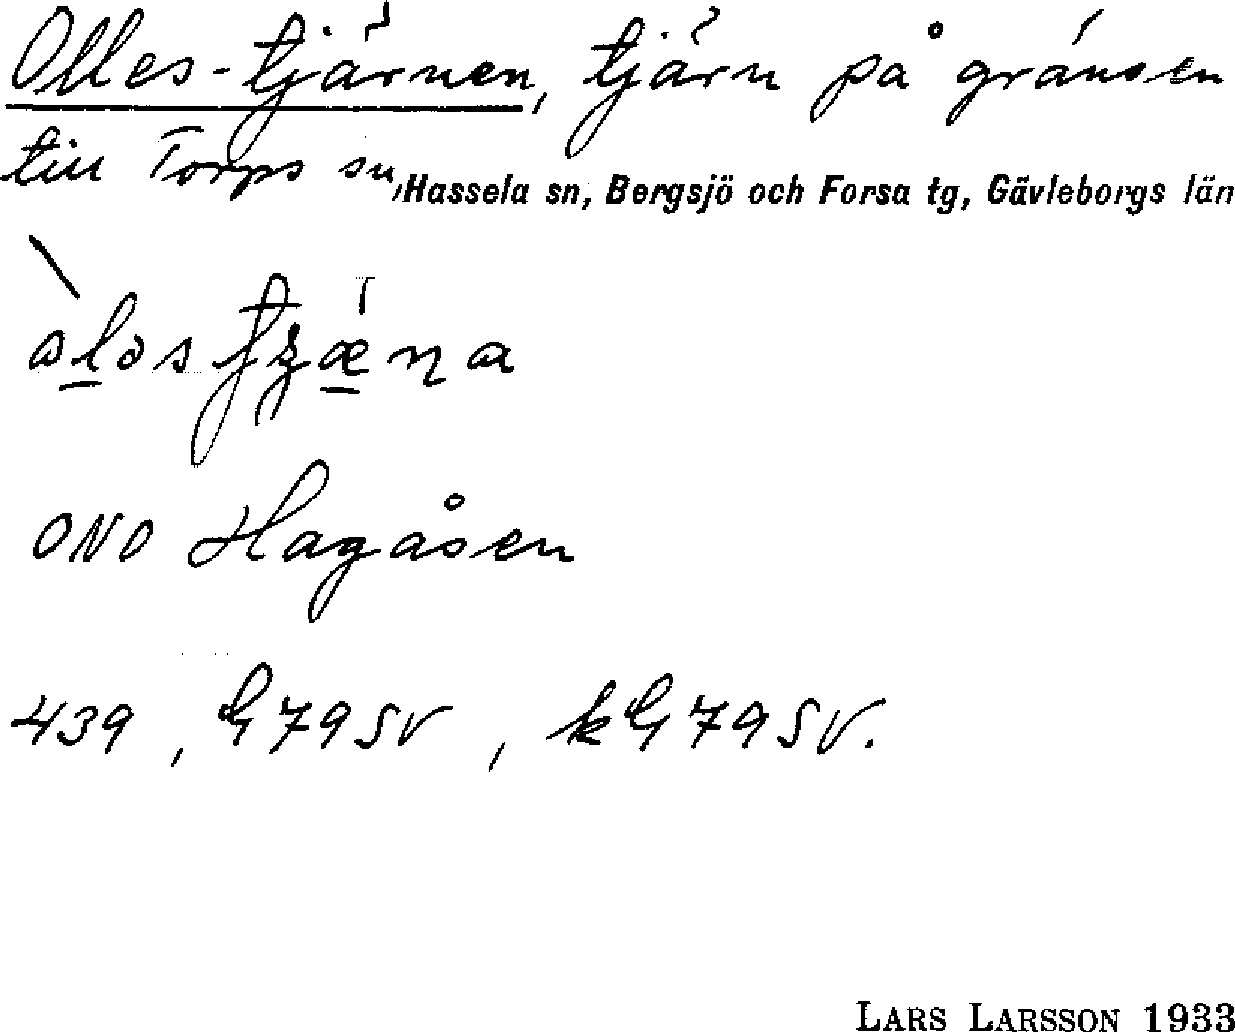 Olles-tjärnen, tjärn på gränsen
till Torps sn, Hassela sn, Bergsjö och Forsa tg, Gävleborgs län
ONO Hagåsen
439, G79SV, kG79SV.
LARS LARSSON 1933